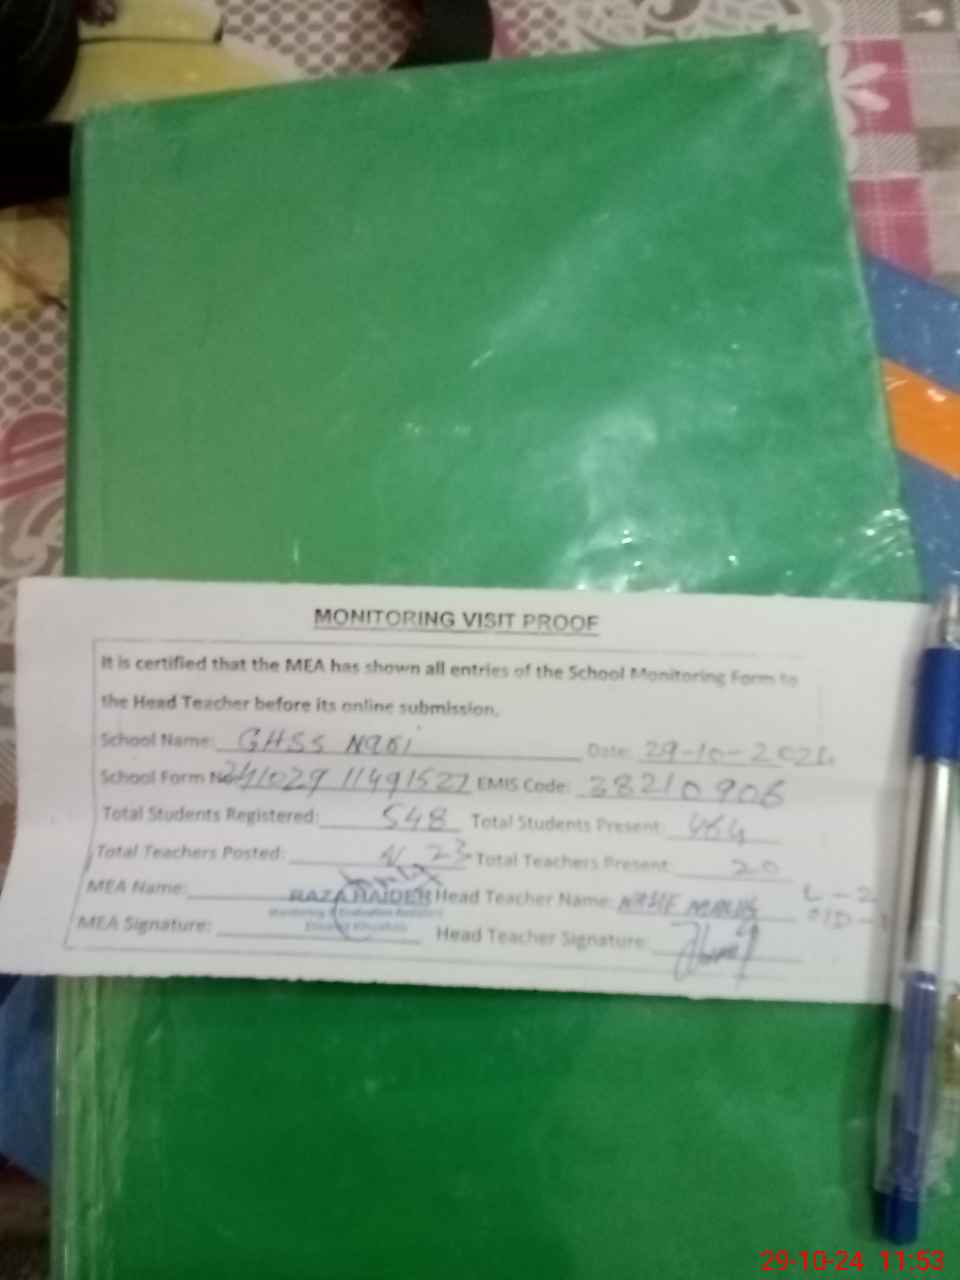 MONITORING VISIT PROOF
It is certified that the MEA has shown all entries of the School Monitoring Form to
the Head Teacher before its online submission.
School Name: GHSS Date: 29-10-2024
School Form No 24102911491527 EMIS Code: 38210906
Total Students Registered: 548 Total Students Present: 464
Total Teachers Posted: 23 Total Teachers Present: 20
L-2
MEA Name: RAZA HAIDER Head Teacher Name:
Monitoring & Evaluation Assistant
MEA Signature: Head Teacher Signature:
29-10-24 11:53